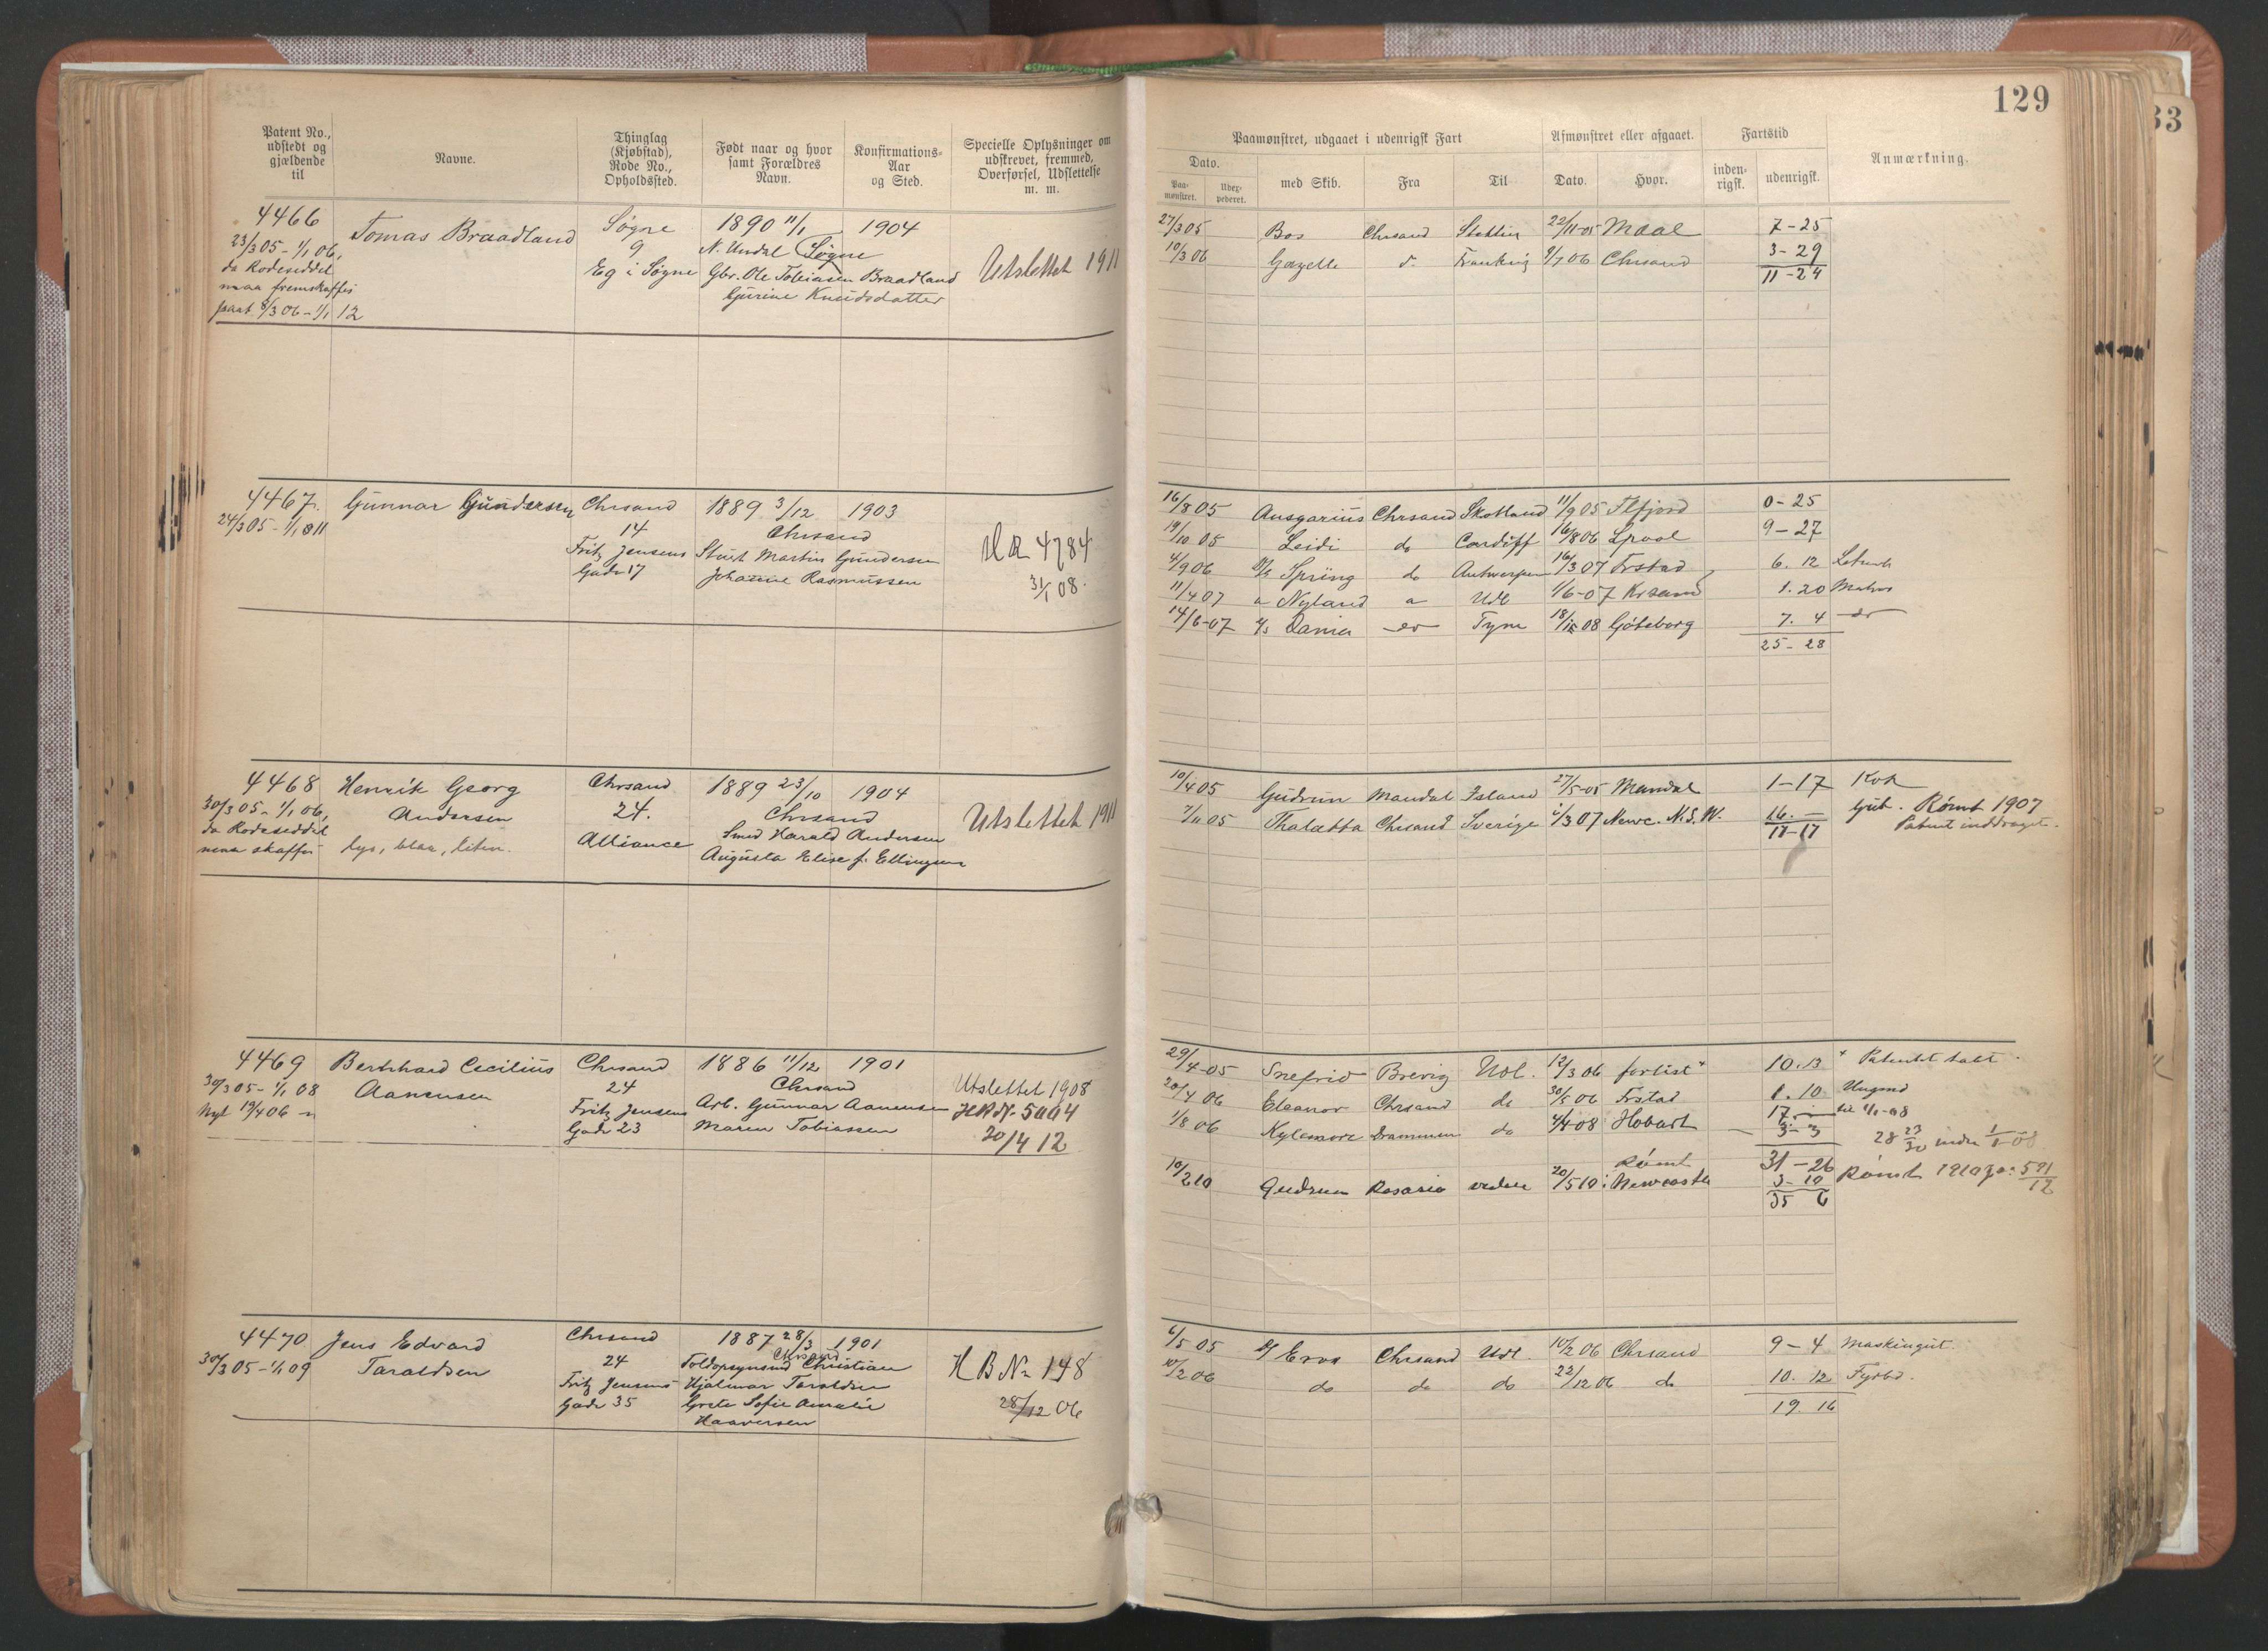 129
33
Patent No., udstedt og gjældende til
Navne.
Thinglag (Kjøbstad), Rode No., Opholdssted.
Født naar og hvor samt Forældres Navn.
Konfirmations-Aar og Sted.
Specielle Oplysninger om udskrevet, fremmed, Overførsel, Udslettelse m. m.
Paamønstret, udgaaet i udenrigsk Fart
Afmønstret eller afgaaet.
Fartstid
Anmærkning.
Dato.
Paa-mønstret.
med Skib.
Fra
Til
Dato.
Hvor.
inden-rigsk.
udenrigsk.
4466 Tomas Braadland Søgne 1890 11/1 1904
23/3 05 - 1/1 06, 9 N. Undal Søgne
da Rodeseddel Eg i Søgne Gbr. Ole Tobiasen Braadland Utslettet 1911
maa fremskaffes Gurine Knudsdatter
paat 8/3 06 - 1/1 12
27/3 05 Bos Chrsand Stettin 22/11-05 Maal 7-25
10/3 06 Gazelle d. 9/7 06 Chrsand 3-29
11-24
4467. Gunnar Gundersen Chrsand 1889 3/12 1903
24/3 05 - 1/1 811 14 Chrsand
Fritz Jensens Stuert Martin Gundersen
Gade 17 Johanne Rasmussen
31/1 08.
16/8 05 Ansgarius Chrsand Skotland 11/9 05 Flfjord 0-25
19/10 05 Leidi do Cardiff 16/8 06 Lpool 9-27
4/9 06 S/S Spring do Antwerpen 16/3 07 Frstad 6. 12
11/4 07 " Nyland " Udl 1/6-07 Krsand 1.20 Matros
14/6-07 S/S Dania do Tyne 08 Göteborg 7. 4 do
25-28
4468 Henrik Georg Chrsand 1889 23/10 1904
30/3 05 - 1/1 06, Andersen 24. Chrsand
da Rodeseddel Smed Harald Andersen Utslettet 1911
maa skaffes lys, blaa, liten. Alliance Augusta Elise f. Ellingsen
10/4 05 Gudrun Mandal Island 27/5-05 Mandal 1-17 Kok
7/11 05 Thalatta Chrsand Sverige 1/3 07 Newc. N.S.W. 16.- Rømt 1907
17-17 Patent inddraget.
4469 Bernhard Cecilius Chrsand 1886 11/12 1901
30/3 05 - 1/1 08 Aanensen 24 Chrsand Utslettet 1908
Nyt 19/4 06 Fritz Jensens Arb. Gunnar Aanensen
Gade 23 Maren Tobiassen 20/4 12
29/4-05 Snefrid Brevig Udl. 12/3 06 forlist* 10.13 * Patentet tabt.
20/4 06 Eleanor Chrsand do 30/5 06 Frstad 1. 10 Ungmd
1/8 06 Kylemore Drammen do 4/4 08 Hobart 17. til 1/1-08
3-3
31-26
10/2 10 Gudrun Rosario 20/5 10 Rømt i Newcastle 3-10 Rømt 1910
35 6
4470 Jens Edvard Chrsand 1887 28/3 1901
30/3 05 - 1/1 09 Taraldsen 24 Chrsand
Toldopsynsmd Christian
Fritz Jensens Hjalmar Taraldsen H B No 148
Gade 35 Grete Sofie Amalie 28/12 06
Haaversen
6/5 05 S/S Eros Chrsand Udl. 10/2 06 Chrsand 9-4 Maskingut.
10/2 06 do do do 22/12 06 do 10. 12 Fyrbd.
19. 16